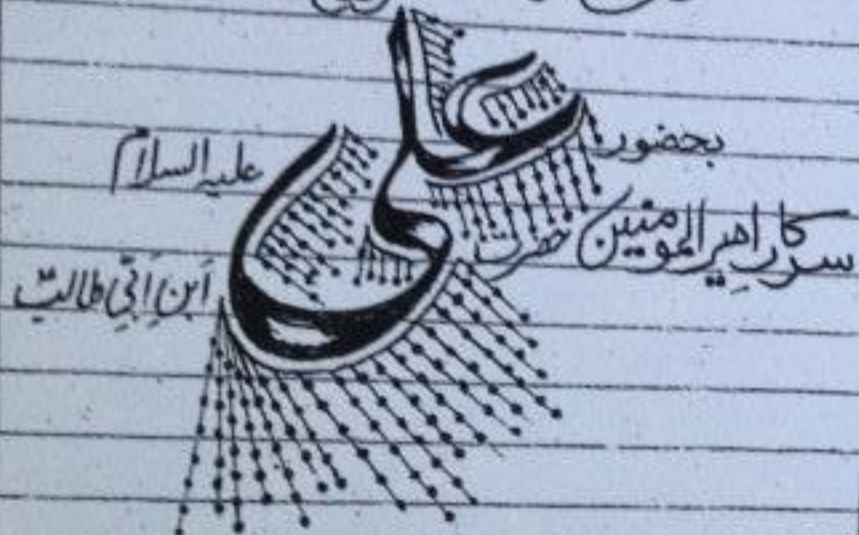 بحضور
سرکار امیر المومنین حضرت
علی
علیہ السلام
ابنِ ابی طالب